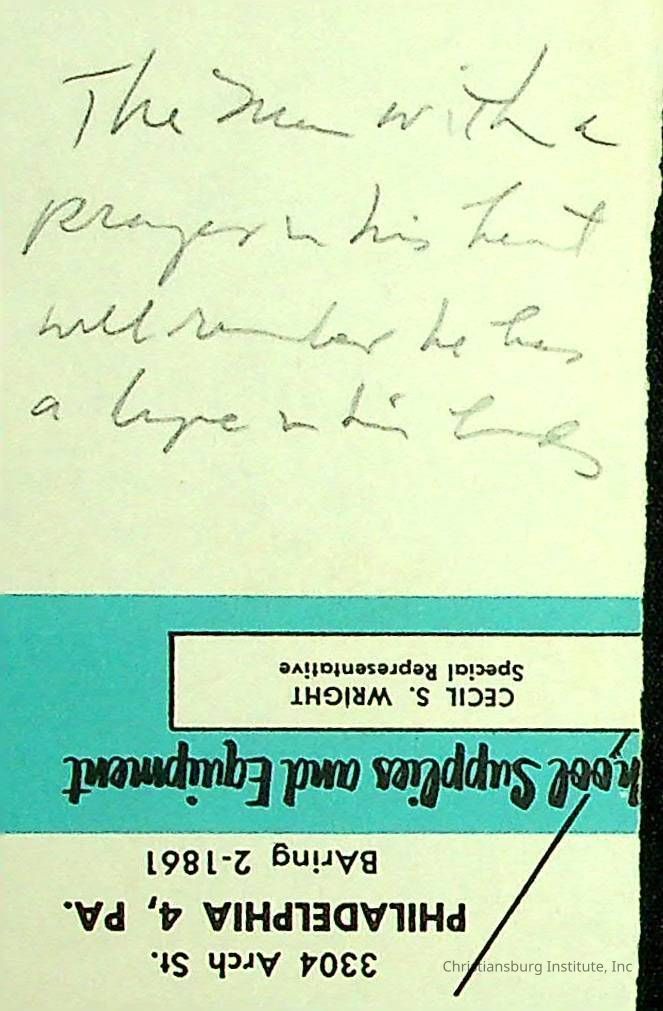 The Man with a
prayer in his heart
will remember he has
a hope in his hands
CECIL S. WRIGHT
Special Representative
hool Supplies and Equipment
BAring 2-1861
PHILADELPHIA 4, PA.
3304 Arch St.
Christiansburg Institute, Inc